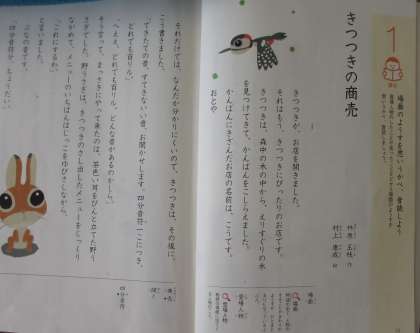 1
場面のようすを思いうかべ、音読しよう
きつつきの商売
林原 玉枝 作
村上 康成 絵
きつつきが、お店を開きました。
それはもう、きつつきにぴったりのお店です。
きつつきは、森中の木の中から、えりすぐりの木
を見つけてきて、かんばんをこしらえました。
かんばんにきざんだお店の名前は、こうです。
おとや
場面
登場人物
それだけでは、なんだか分かりにくいので、きつつきは、その後に、
こう書きました。
「できたての音、すてきないい音、お聞かせします。四分音符一こにつき、
どれでも百リル。」
「へええ。どれでも百リル。どんな音があるのかしら。」
そう言って、まっさきにやって来たのは、茶色い耳をぴんと立てた野う
さぎでした。野うさぎは、きつつきのさし出したメニューをじっくり
ながめて、メニューのいちばんはじっこをゆびさしながら、
「これにするわ。」
と言いました。
ぶなの音です。
「四分音符分、ちょうだい。」
四分音符